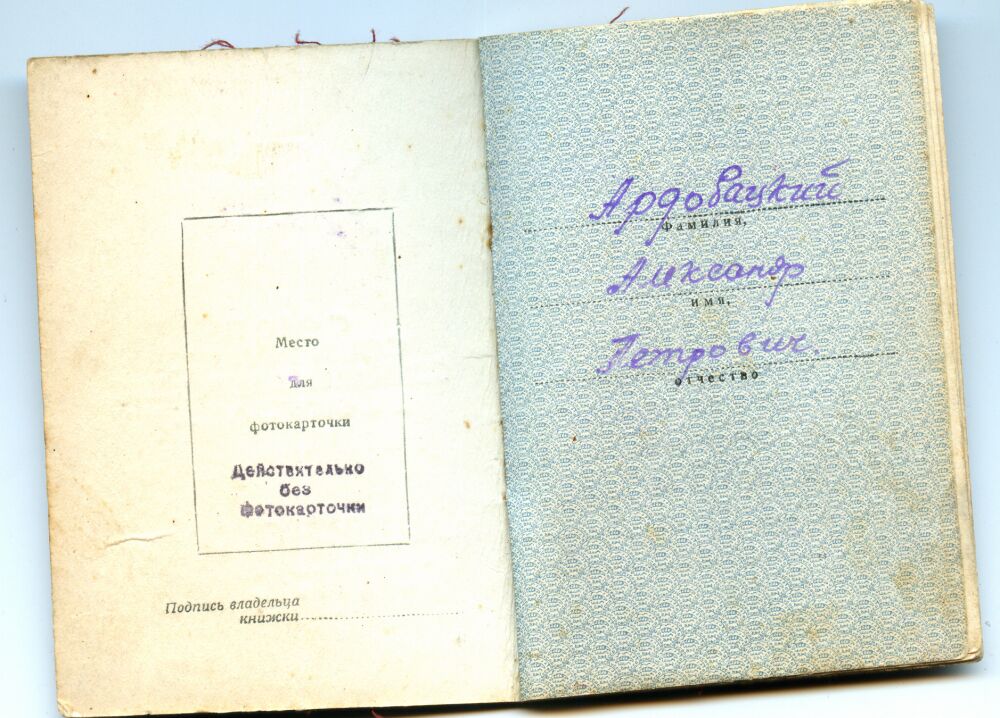 Место
для
фотокарточки
Действительно
без
фотокарточки
Подпись владельца
книжки
Ардовацкий
Фамилия,
Александр
имя,
Петрович.
отчество